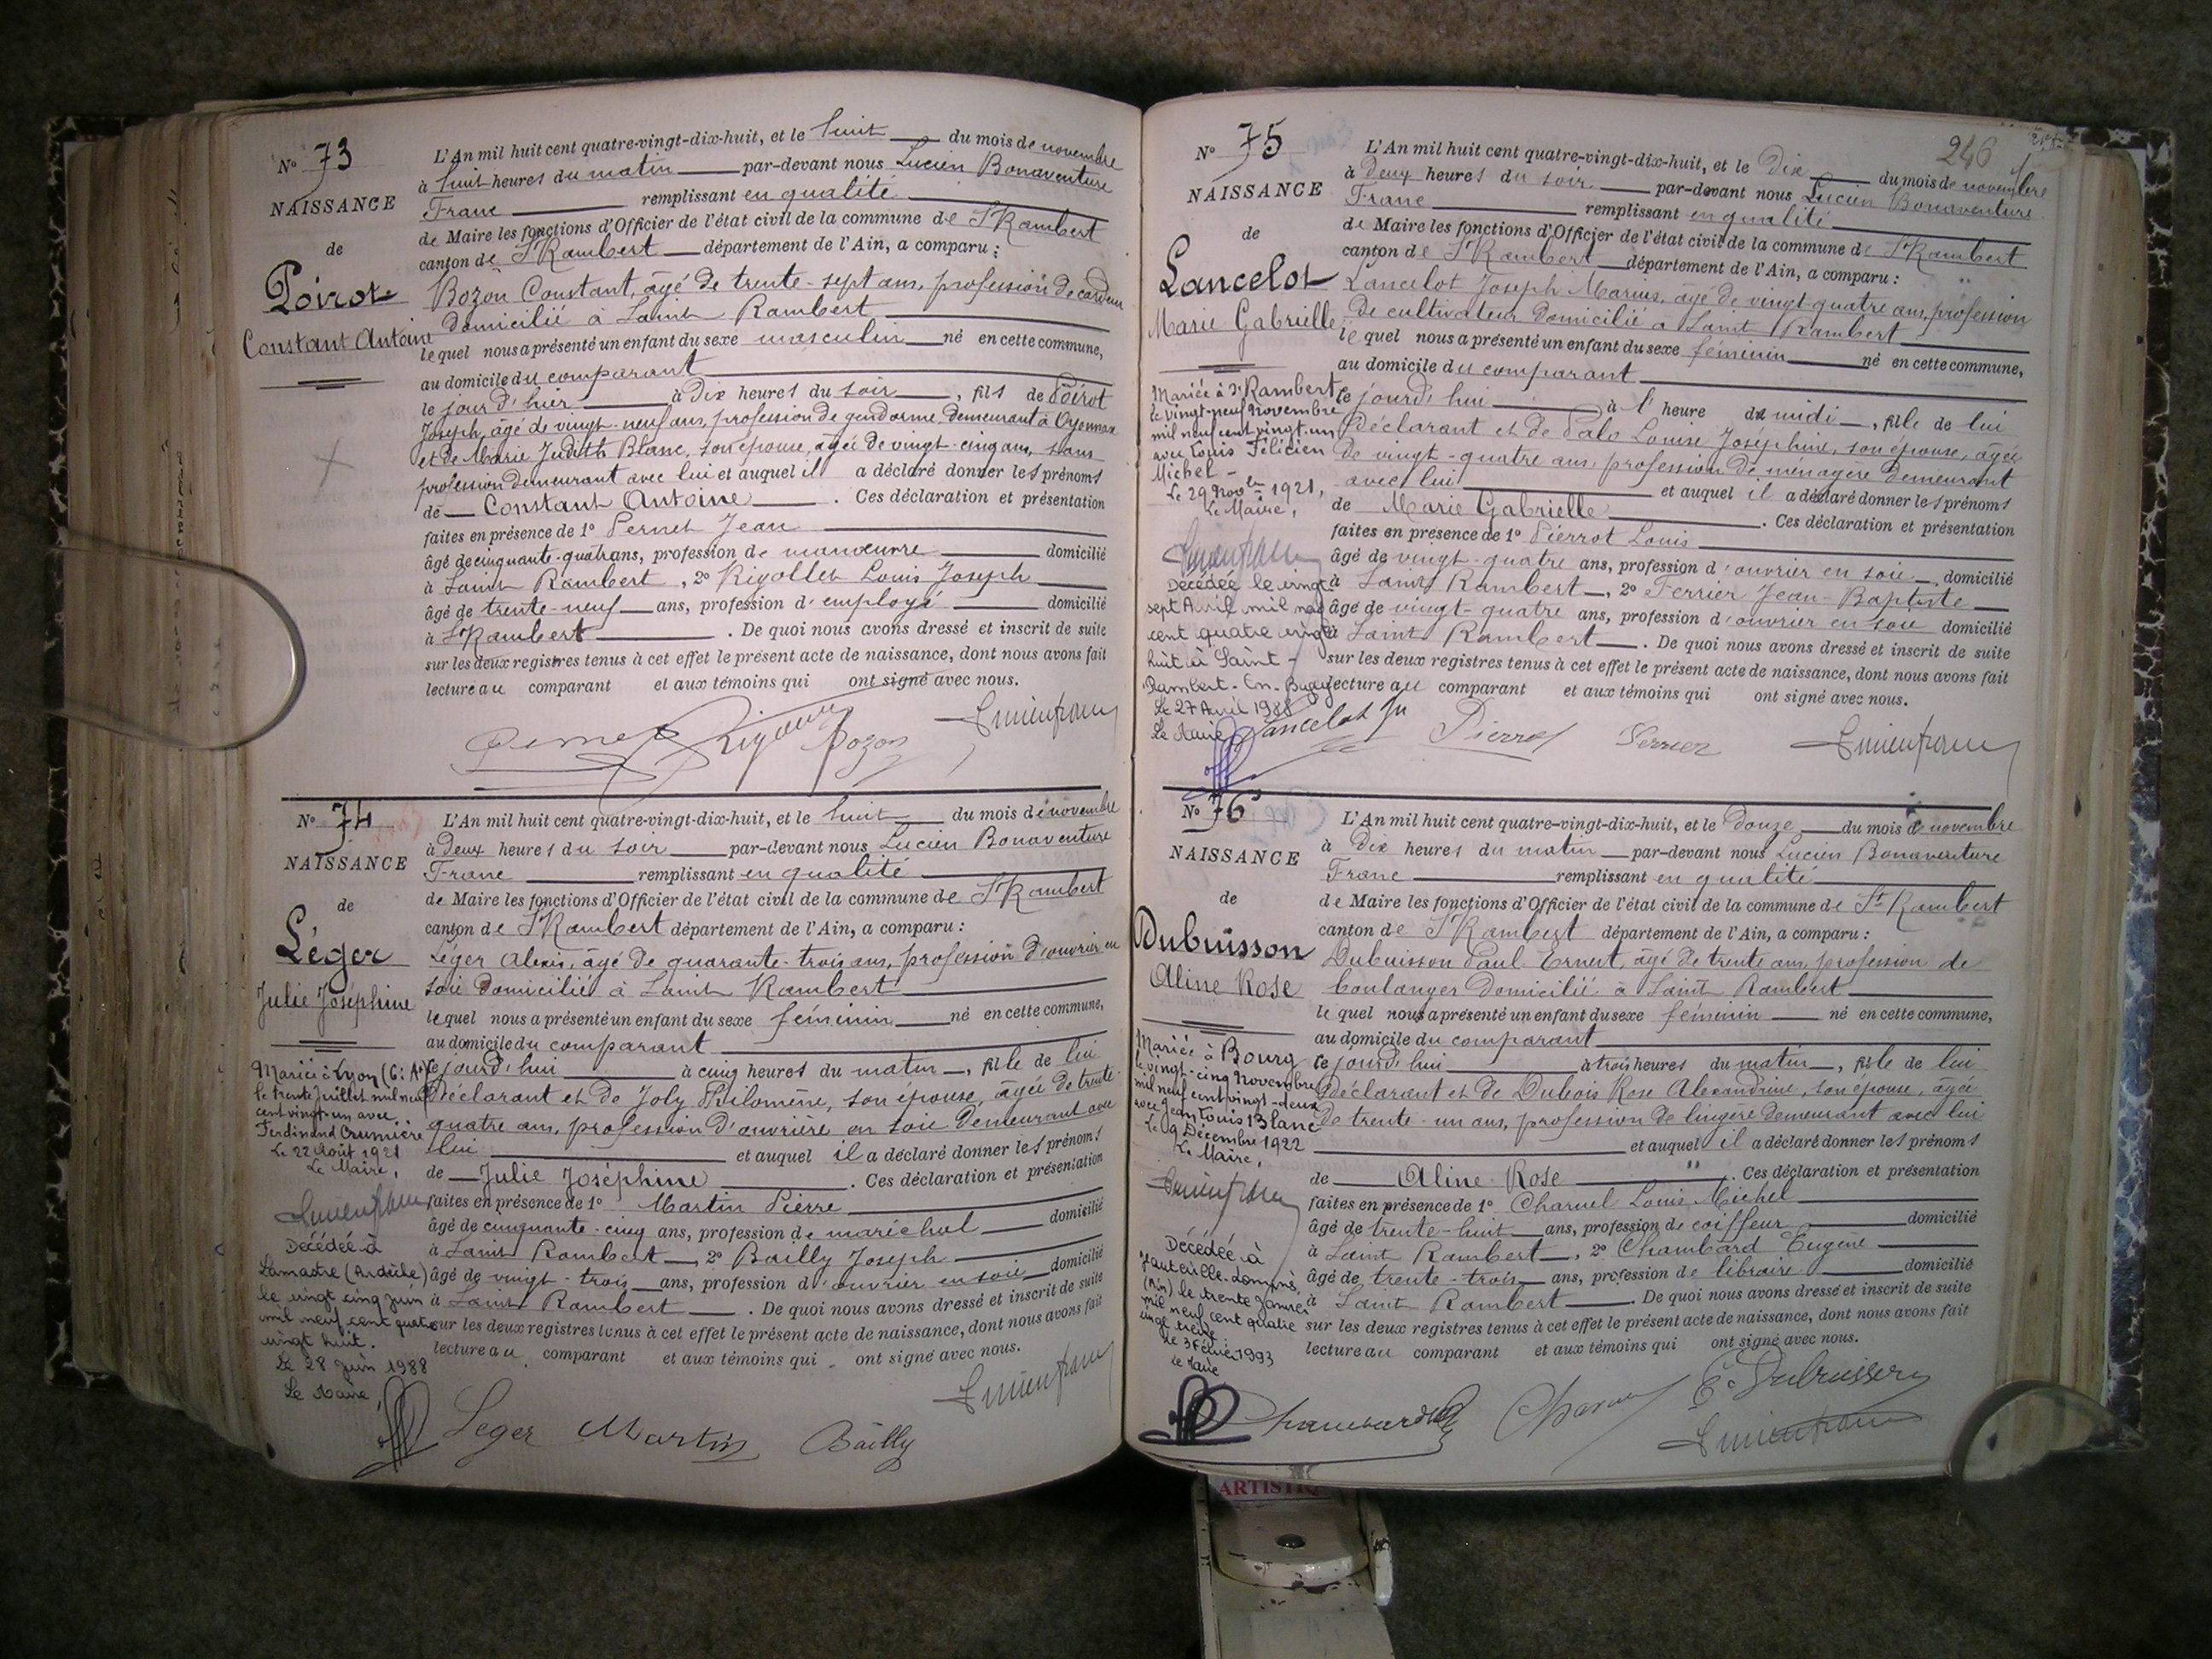 N° 73
NAISSANCE
de
Poirot
Constant Antoine
L'An mil huit cent quatre-vingt-dix-huit, et le huit du mois de novembre
à huit heures du matin par-devant nous Lucien Bonaventure
Franc remplissant en qualité
de Maire les fonctions d'Officier de l'état civil de la commune de St Rambert
canton de St Rambert département de l'Ain, a comparu :
Bozon Constant, âgé de trente-sept ans, profession de cardeur
domicilié à Saint Rambert
lequel nous a présenté un enfant du sexe masculin né en cette commune,
au domicile du comparant
le jour d'hier à dix heures du soir, fils de Poirot
Joseph, âgé de vingt-neuf ans, profession de gendarme, demeurant à Oyonnax
et de Marie Judith Blanc, son épouse, âgée de vingt-cinq ans, sans
profession demeurant avec lui et auquel il a déclaré donner les prénoms
de Constant Antoine. Ces déclaration et présentation
faites en présence de 1° Pernet Jean
âgé de cinquante-quatre ans, profession de manœuvre domicilié
à Saint Rambert, 2° Rigollet Louis Joseph
âgé de trente-neuf ans, profession d'employé domicilié
à St Rambert. De quoi nous avons dressé et inscrit de suite
sur les deux registres tenus à cet effet le présent acte de naissance, dont nous avons fait
lecture au comparant et aux témoins qui ont signé avec nous.
Pernet Bozon
N° 74
NAISSANCE
de
Léger
Julie Joséphine
Mariée à Lyon (6e Art)
le trente Juillet mil neuf
cent vingt-un avec
Ferdinand Crumière
Le 22 Août 1921
Le Maire,
Décédée à
Lamastre (Ardèche)
le vingt cinq juin
mil neuf cent quatre
vingt huit.
Le 28 juin 1988
Le Maire,
L'An mil huit cent quatre-vingt-dix-huit, et le huit du mois de novembre
à deux heures du soir par-devant nous Lucien Bonaventure
Franc remplissant en qualité
de Maire les fonctions d'Officier de l'état civil de la commune de St Rambert
canton de St Rambert département de l'Ain, a comparu :
Léger Alexis, âgé de quarante-trois ans, profession d'ouvrier en
soie domicilié à Saint Rambert
lequel nous a présenté un enfant du sexe féminin né en cette commune,
au domicile du comparant
ce jourd'hui à cinq heures du matin, fille de lui
déclarant et de Joly Philomène, son épouse, âgée de trente-
quatre ans, profession d'ouvrière en soie demeurant avec
lui et auquel il a déclaré donner les prénoms
de Julie Joséphine. Ces déclaration et présentation
faites en présence de 1° Martin Pierre
âgé de cinquante-cinq ans, profession de maréchal domicilié
à Saint Rambert, 2° Bailly Joseph
âgé de vingt-trois ans, profession d'ouvrier en soie domicilié
à Saint Rambert. De quoi nous avons dressé et inscrit de suite
sur les deux registres tenus à cet effet le présent acte de naissance, dont nous avons fait
lecture au comparant et aux témoins qui ont signé avec nous.
Leger Martin Bailly
246
N° 75
NAISSANCE
de
Lancelot
Marie Gabrielle
Mariée à St Rambert
le vingt-neuf Novembre
mil neuf cent vingt-un
avec Louis Félicien
Michel
Le 29 Novbre 1921,
Le Maire,
Décédée le vingt
sept Avril mil neuf
cent quatre vingt
huit à Saint-
Rambert-en-Bugey
Le 27 Avril 1988
Le Maire
L'An mil huit cent quatre-vingt-dix-huit, et le dix du mois de novembre
à deux heures du soir par-devant nous Lucien Bonaventure
Franc remplissant en qualité
de Maire les fonctions d'Officier de l'état civil de la commune de St Rambert
canton de St Rambert département de l'Ain, a comparu :
Lancelot Joseph Marius, âgé de vingt-quatre ans, profession
de cultivateur domicilié à Saint Rambert
lequel nous a présenté un enfant du sexe féminin né en cette commune,
au domicile du comparant
ce jourd'hui à l'heure de midi, fille de lui
déclarant et de Louise Joséphine, son épouse, âgée
de vingt-quatre ans, profession de ménagère demeurant
avec lui et auquel il a déclaré donner les prénoms
de Marie Gabrielle. Ces déclaration et présentation
faites en présence de 1° Pierrot Louis
âgé de vingt-quatre ans, profession d'ouvrier en soie, domicilié
à Saint Rambert, 2° Ferrier Jean-Baptiste
âgé de vingt-quatre ans, profession d'ouvrier en soie domicilié
à Saint Rambert. De quoi nous avons dressé et inscrit de suite
sur les deux registres tenus à cet effet le présent acte de naissance, dont nous avons fait
lecture au comparant et aux témoins qui ont signé avec nous.
Lancelot Pierrot Ferrier
N° 76
NAISSANCE
de
Dubuisson
Aline Rose
Mariée à Bourg
le vingt-cinq Novembre
mil neuf cent vingt-deux
avec Jean Louis Blanc
Le 9 Décembre 1922
Le Maire,
Décédée à
Hauteville-Lompnès
(Ain) le trente Janvier
mil neuf cent quatre
vingt treize
Le 3 Février 1993
Le Maire
L'An mil huit cent quatre-vingt-dix-huit, et le douze du mois de novembre
à dix heures du matin par-devant nous Lucien Bonaventure
Franc remplissant en qualité
de Maire les fonctions d'Officier de l'état civil de la commune de St Rambert
canton de St Rambert département de l'Ain, a comparu :
Dubuisson Paul Ernest, âgé de trente ans, profession de
boulanger domicilié à Saint Rambert
lequel nous a présenté un enfant du sexe féminin né en cette commune,
au domicile du comparant
ce jourd'hui à trois heures du matin, fille de lui
déclarant et de Dubois Rose Alexandrine, son épouse, âgée
de trente-un ans, profession de lingère demeurant avec lui
et auquel il a déclaré donner les prénoms
de Aline Rose. Ces déclaration et présentation
faites en présence de 1° Charvel Louis Michel
âgé de trente-huit ans, profession de coiffeur domicilié
à Saint Rambert, 2° Chambard Eugène
âgé de trente-trois ans, profession de libraire domicilié
à Saint Rambert. De quoi nous avons dressé et inscrit de suite
sur les deux registres tenus à cet effet le présent acte de naissance, dont nous avons fait
lecture au comparant et aux témoins qui ont signé avec nous.
Chambard Dubuisson